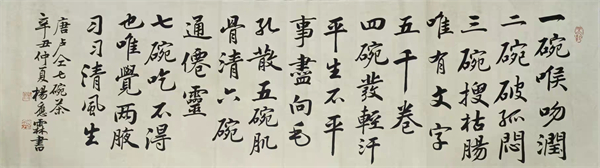 一碗喉吻潤
二碗破孤悶
三碗搜枯腸
唯有文字
五千卷
四碗發輕汗
平生不平
事盡向毛
孔散五碗肌
骨清六碗
通僊靈
七碗吃不得
也唯覺兩腋
習習清風生
唐卢仝七碗茶
辛丑仲夏楊應霖書